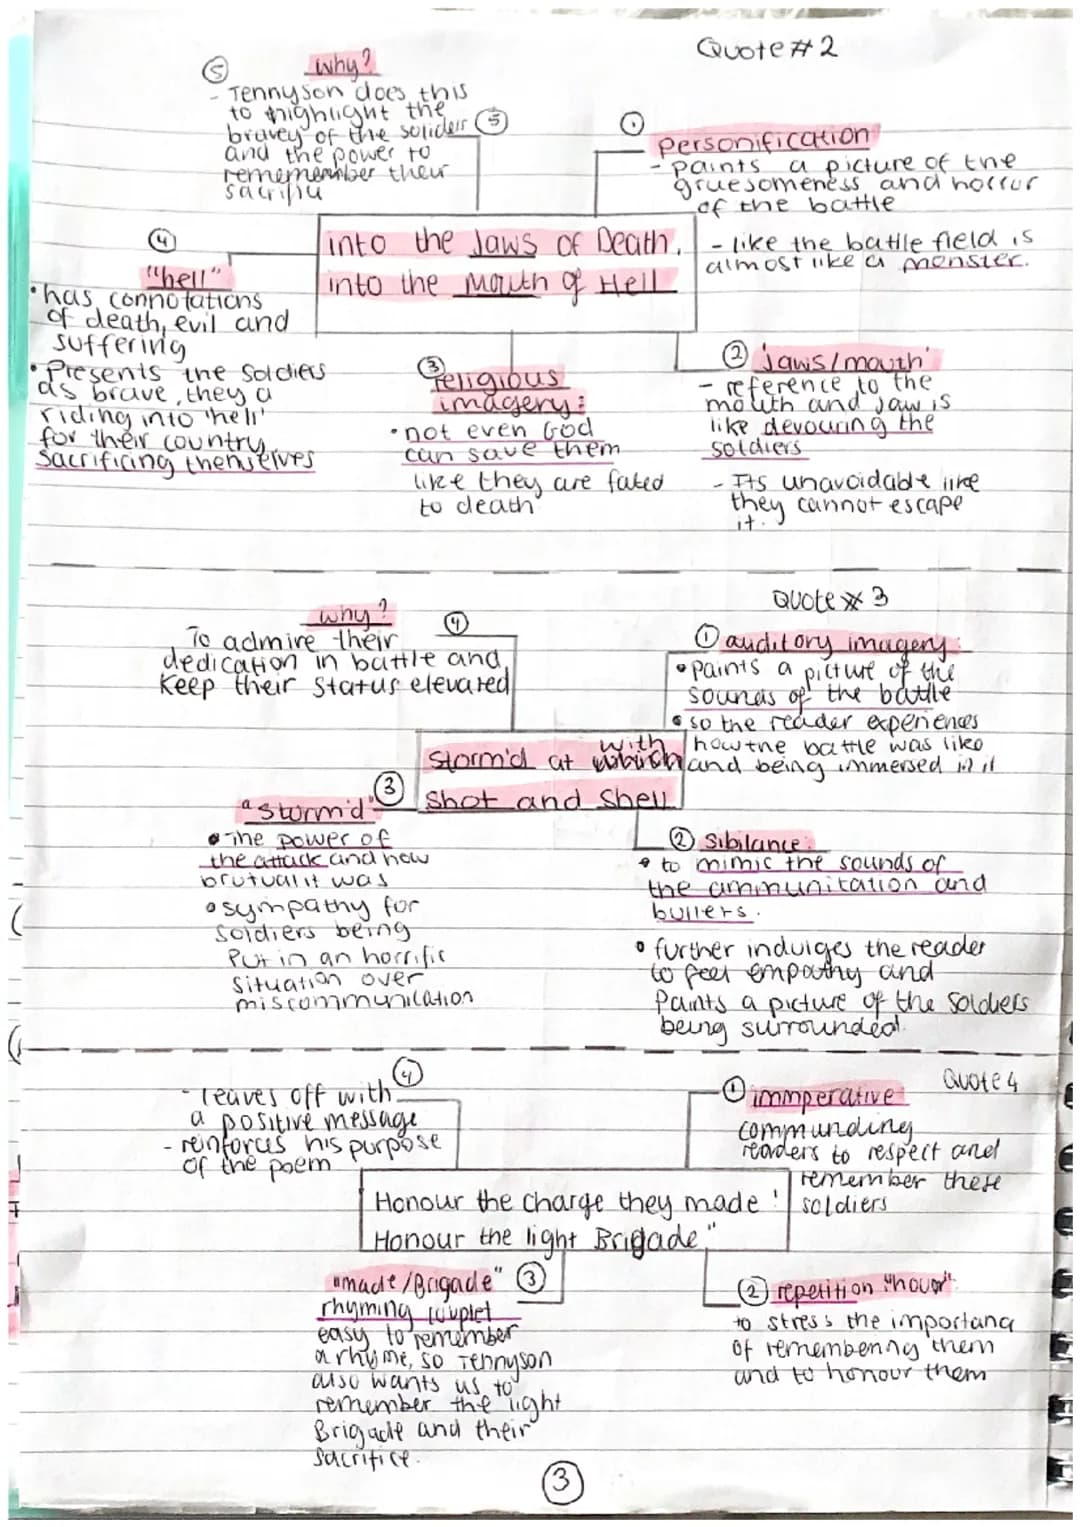 Quote #2
⑤
why?
- Tennyson does this
to highlight the
bravey of the soliders
and the power to
rememember their
sacrifiu
⑤
①
personification
- paints a picture of the
gruesomeness and horror
of the battle
- like the battle field is
almost like a monster.
into the Jaws of Death,
into the Mouth of Hell
④
"hell"
• has connotations
of death, evil and
suffering
• Presents the soldiers
as brave, they a
riding into 'hell'
for their country,
sacrificing themselves
③
religious
imagery:
• not even God
can save them
like they are fated
to death
② 'jaws/mouth'
- reference to the
mouth and jaw is
like devouring the
soldiers
- Its unavoidable like
they cannot escape
it.
Quote # 3
why?
④
To admire their
dedication in battle and
keep their status elevated
① auditory imagery:
• paints a picture of the
sounds of the battle
• so the reader experiences
how the battle was like
and being immersed in it
Storm'd at with
shot and shell
③
"stormd"
• The power of
the attack and how
brutual it was
• sympathy for
soldiers being
put in an horrific
situation over
miscommunication
② Sibilance:
• to mimic the sounds of
the ammunitation and
bullets.
• further indulges the reader
to feel empathy and
paints a picture of the soldiers
being surrounded.
Quote 4
④
- leaves off with
a positive message
- reinforces his purpose
of the poem
① immperative
communding
readers to respect and
remember these
soldiers
Honour the charge they made!
Honour the light Brigade"
"made/Brigade" ③
rhyming couplet
easy to remember
a rhyme, so Tennyson
also wants us to
remember the light
Brigade and their
sacrifice.
② repetition "honour":
to stress the importance
of remembering them
and to honour them
③